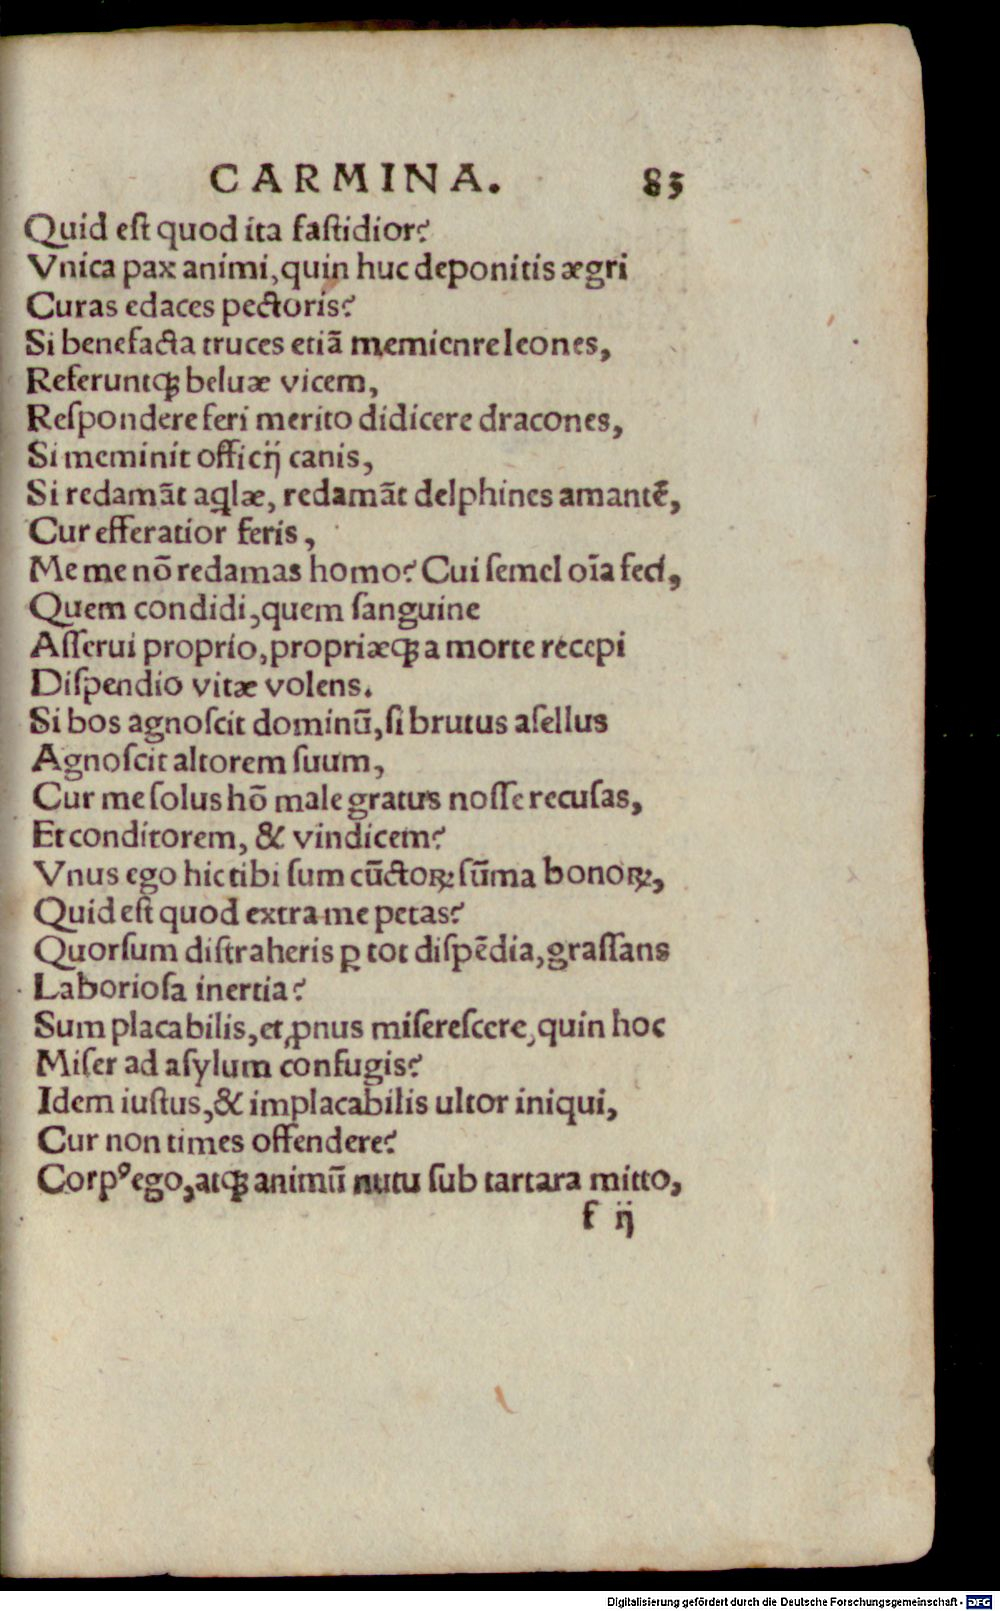 CARMINA. 83
Quid eſt quod ita faſtidior?
Vnica pax animi, quin huc deponitis ægri
Curas edaces pectoris?
Si benefacta truces etiã memienreleones,
Referuntꝗ; beluæ vicem,
Reſpondere feri merito didicere dracones,
Si meminit officij canis,
Si redamãt aqͥlæ, redamãt delphines amantẽ,
Cur efferatior feris,
Me me nõ redamas homo? Cui ſemel oĩa feci,
Quem condidi, quem ſanguine
Aſſerui proprio, propriæꝗ; a morte recepi
Diſpendio vitæ volens.
Si bos agnoſcit dominũ, ſi brutus aſellus
Agnoſcit altorem ſuum,
Cur me ſolus hõ male gratus noſſe recuſas,
Et conditorem, & vindicem?
Vnus ego hic tibi ſum cũctoꝝ ſũma bonoꝝ,
Quid eſt quod extra me petas?
Quorſum diſtraheris ꝑ tot diſpẽdia, graſſans
Laborioſa inertia?
Sum placabilis, et ꝓnus miſereſcere, quin hoc
Miſer ad aſylum confugis?
Idem iuſtus, & implacabilis ultor iniqui,
Cur non times offendere?
Corpꝰ ego, atꝗ; animũ nutu ſub tartara mitto,
f ij
Digitalisierung gefördert durch die Deutsche Forschungsgemeinschaft - DFG